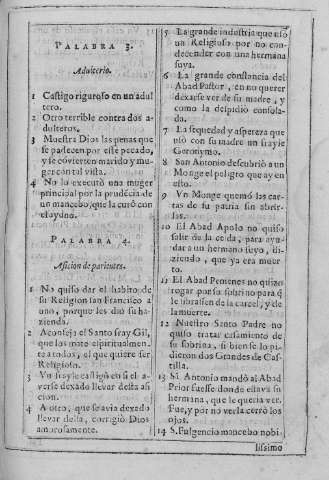 PALABRA 3.
Adulterio.
1 Castigo riguroso en un adul
tero.
2 Otro terrible contra dos a-
dulteros.
3 Muestra Dios las penas que
se padecen por este pecado,
y se cõvierten marido y mu-
ger con tal vista.
4 No lo executò una muger
principal por la prudẽcia de
un mancebo, que la curò con
el ayuno.
PALABRA 4.
Aficion de parientes.
1 No quiso dar el habito de
su Religion san Francisco a
uno, porque les dio su ha-
zienda.
2 Aconseja el Santo fray Gil,
que los mate espiritualmen-
te a todos, el que quiere ser
Religioso.
3 Vn frayle castigò en si el a-
verse dexado llevar desta afi
cion.
4 A otro, que se avia dexado
llevar desta, corrigiò Dios
amorosamente.
5 La grande industria que usò
un Religioso por no con-
decender con una hermana
suya.
6 La grande constancia del
Abad Pastor, en no querer
dexarse ver de su madre, y
como la despidiò consola-
da.
7 La sequedad y aspereza que
usò con su madre un frayle
Geronymo.
8 San Antonio descubriò a un
Monge el peligro que ay en
esto.
9 Vn Monge quemò las car-
tas de su patria sin abrir-
las.
10 El Abad Apolo no quiso
salir de la celda, para ayu-
dar a un hermano suyo, di-
ziendo, que ya era muer
to.
11 El Abad Pemenes no quizo
rogar por su sobrino para q̃
le librassen de la carcel, y de
la muerte.
12 Nuestro Santo Padre no
quiso tratar casamiento de
su sobrina, si bien se lo pi-
dieron dos Grandes de Cas-
tilla.
13 S. Antonio mandò al Abad
Prior fuesse donde estava su
hermana, que le queria ver.
Fue, y por no verla cerrò los
ojos.
14 S. Fulgencio mancebo nobi-
lissimo